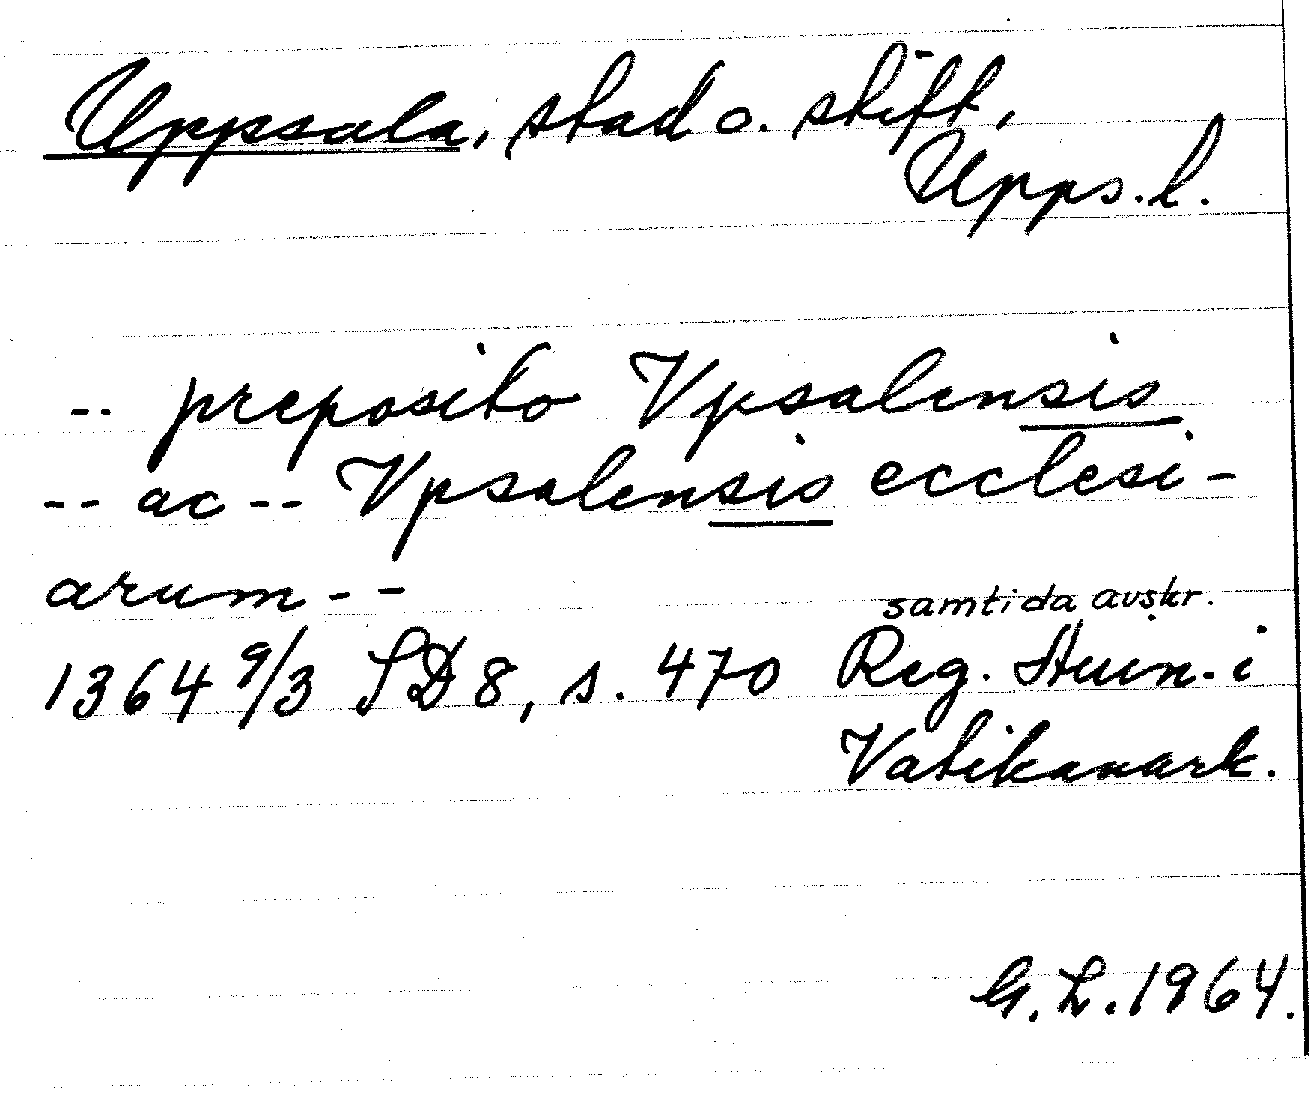 Uppsala, stad o. stift,
Upps. l.
-- preposito Vpsalensis
-- ac -- Vpsalensis ecclesi-
arum --
samtida avskr.
1364 9/3 SD 8, s. 470 Reg. i
Vatikanark.
G. L. 1964.